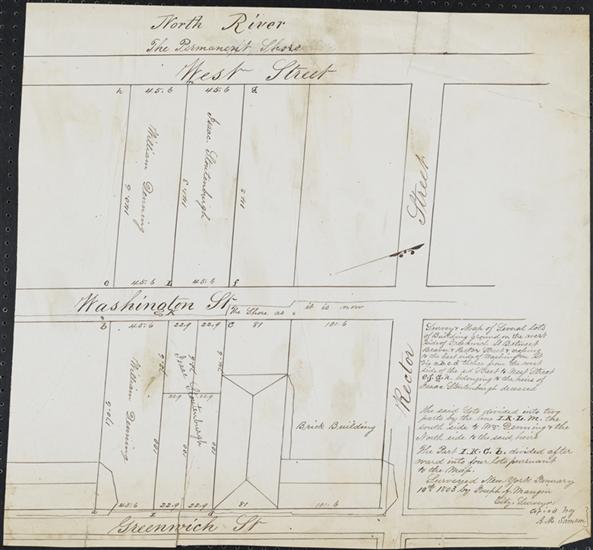 North River
The Permanent Shore
West Street
h 45.6 45.6 d
William Denning
Isaac Stoutenburgh
Street
45.6 45.6
Washington St
The Shore as it is now
b 45.6 22.9 22.9 C 81 101.6
William Denning
Stoutenburgh
22.9 22.9
Brick Building
Rector
45.6 22.9 22.9 81 101.6
Greenwich St
Survey & Map of Several lots
of Building ground on the west
side of Greenwich St Between
Rector Street &
to the East side of Washington St
from the west
side of the sd Street to West Street
belonging to the heirs of
Isaac Stoutenburgh deceased
The said lots divided into two
parts by the line I.K.L.M. the
south side to Wm Denning & the
North side to the said heirs
The Part I.K.C.L. divided after
ward into four lots pursuant
to the Map.
Surveyed New York January
10th by Joseph F. Mangin
City Surveyor
Copied by
A.M.